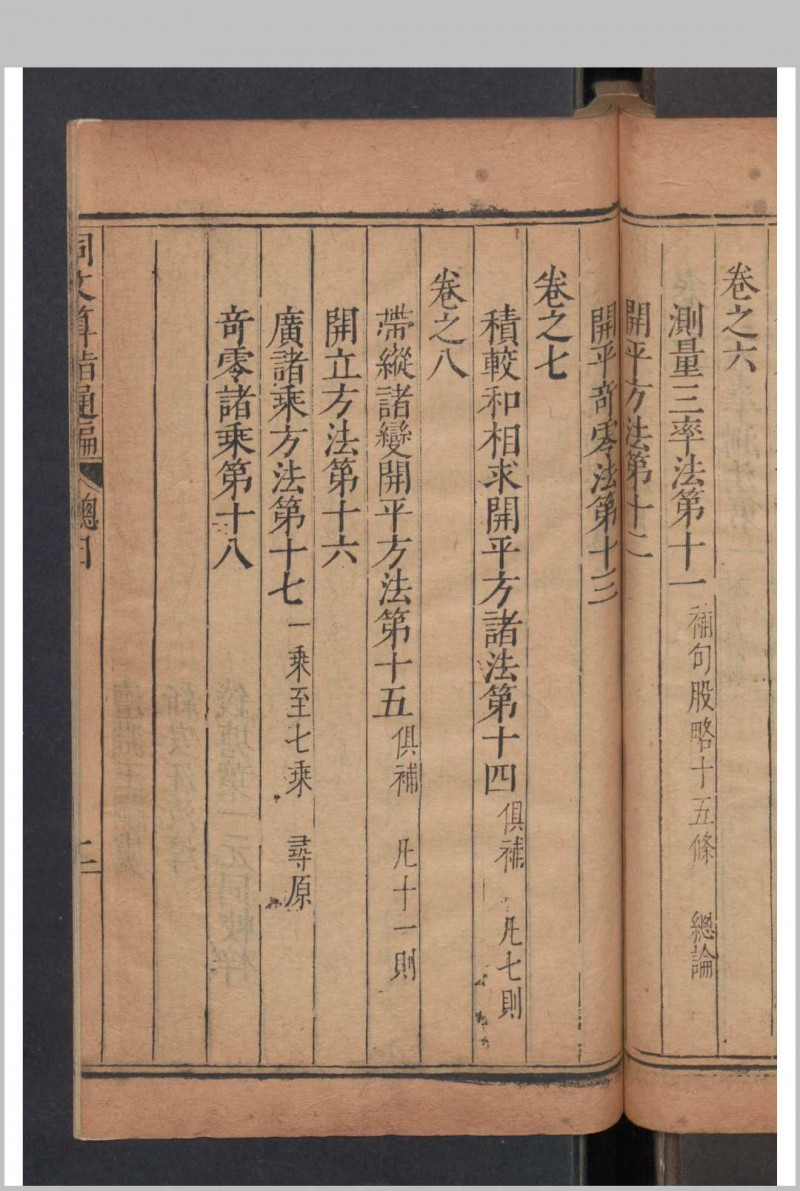 卷之六
測量三率法第十一 補句股略十五條 總論
開平方法第十二
開平奇零法第十三
卷之七
積較和相求開平方諸法第十四 俱補 凡七則
卷之八
帶縱諸變開平方法第十五 俱補 凡十一則
開立方法第十六
廣諸乘方法第十七 一乘至七乘 尋原
奇零諸乘第十八
同文算指通編 總目 二